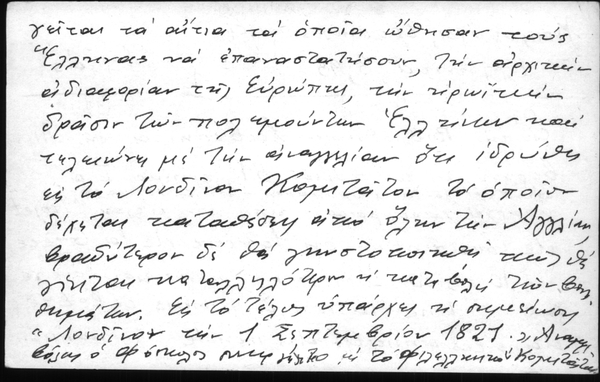 γεῖται τά αἴτια τά ὁποῖα ὤθησαν τούς
Ἕλληνας νά ἐπαναστατήσουν, τήν ἀρχικήν
ἀδιαφορίαν τῆς Εὐρώπης, τήν ἡρωϊκήν
δρᾶσιν τῶν πολεμούντων Ἑλλήνων καί
τελειώνει μέ τήν ἀναγγελίαν ὅτι ἱδρύθη
εἰς τό Λονδῖνον Κομιτᾶτον τό ὁποῖον
δέχεται καταθέσεις ἀπό ὅλην τήν Ἀγγλίαν,
βραδύτερον δέ θά γνωστοποιηθῇ πῶς θά
γίνεται καταλληλότερον ἡ καταβολή τῶν βοη-
θημάτων. Εἰς τό τέλος ὑπάρχει ἡ σημείωσις
"Λονδῖνον τήν 1 Σεπτεμβρίου 1821.
ὁ Φώσκολος μέ τό Φιλελληνικόν Κομιτᾶτον